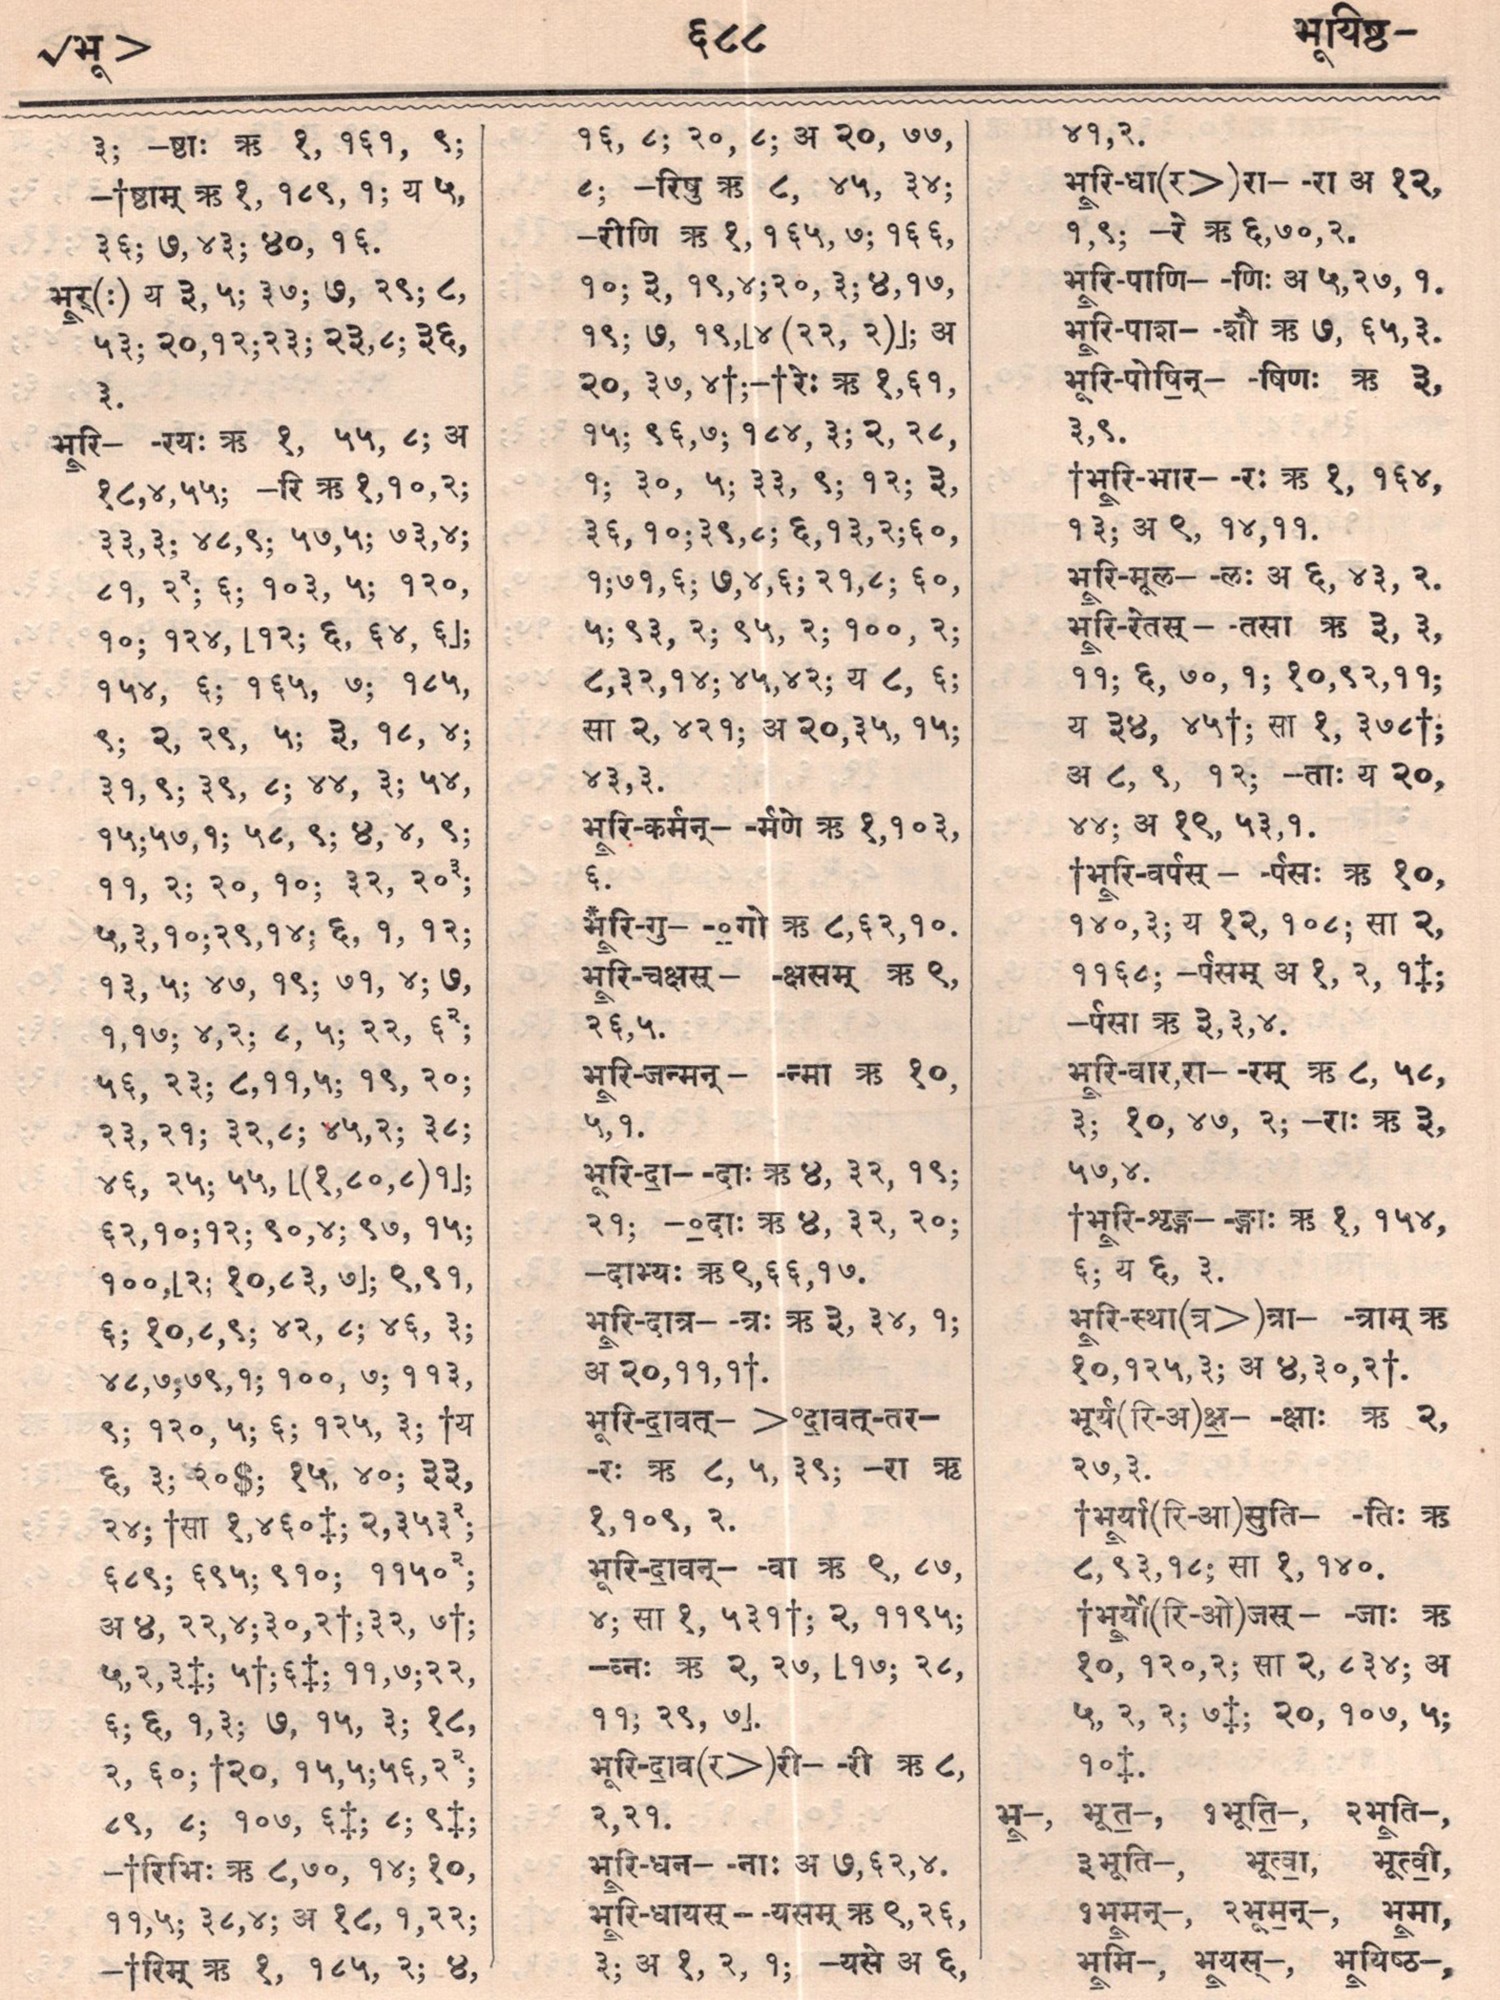 √भू >
६८८
भूयिष्ठ–
३; –ष्ठाः ऋ १, १६१, ९;
–†ष्ठाम् ऋ १, १८९, १; य ५,
३६; ७,४३; ४०, १६.
भूर्(ः) य ३,५; ३७; ७, २९; ८,
५३; २०,१२;२३; २३,८; ३६,
३.
भूरि– -रयः ऋ १, ५५, ८; अ
१८,४,५५; –रि ऋ १,१०,२;
३३,३; ४८,९; ५७,५; ७३,४;
८१, २²; ६; १०३, ५; १२०,
१०; १२४, ⌊१२; ६, ६४, ६⌋;
१५४, ६; १६५, ७; १८५,
९; २, २९, ५; ३, १८, ४;
३१,९; ३९, ८; ४४, ३; ५४,
१५;५७,१; ५८, ९; ४, ४, ९;
११, २; २०, १०; ३२, २०³;
५,३,१०;२९,१४; ६, १, १२;
१३, ५; ४७, १९; ७१, ४; ७,
१,१७; ४,२; ८, ५; २२, ६²;
५६, २३; ८,११,५; १९, २०;
२३, २१; ३२,८; ४५,२; ३८;
४६, २५; ५५, ⌊(१,८०,८)१⌋;
६२,१०;१२; ९०,४; ९७, १५;
१००,⌊२; १०,८३, ७⌋; ९,९१,
६; १०,८,९; ४२, ८; ४६, ३;
४८,७;७९,१; १००, ७; ११३,
९; १२०, ५; ६; १२५, ३; †य
६, ३; २०$; १५, ४०; ३३,
२४; †सा १,४६०‡; २,३५३²;
६८९; ६९५; ९१०; ११५०²;
अ ४, २२,४;३०,२†;३२, ७†;
५,२,३‡; ५†;६‡; ११,७;२२,
६; ६, १,३; ७, १५, ३; १८,
२, ६०; †२०, १५,५;५६,२²;
८९, ८; १०७, ६‡; ८; ९‡;
–†रिभिः ऋ ८,७०, १४; १०,
११,५; ३८,४; अ १८, १,२२;
–†रिम् ऋ १, १८५, २; ४,
१६, ८; २०, ८; अ २०, ७७,
८; –रिषु ऋ ८, ४५, ३४;
–रीणि ऋ १, १६५, ७; १६६,
१०; ३, १९,४;२०, ३; ४,१७,
१९; ७, १९,⌊४ (२२, २)⌋; अ
२०, ३७, ४†;–†रेः ऋ १,६१,
१५; ९६,७; १८४, ३; २, २८,
१; ३०, ५; ३३, ९; १२; ३,
३६, १०;३९,८; ६,१३,२;६०,
१;७१,६; ७,४,६; २१,८; ६०,
५; ९३, २; ९५, २; १००, २;
८,३२,१४; ४५,४२; य ८, ६;
सा २, ४२१; अ २०,३५, १५;
४३,३.
भूरि-कर्मन्– -र्मणे ऋ १,१०३,
६.
भूरि-गु– -०गो ऋ ८,६२,१०.
भूरि-चक्षस्– -क्षसम् ऋ ९,
२६,५.
भूरि-जन्मन्– -न्मा ऋ १०,
५,१.
भूरि-दा– -दाः ऋ ४, ३२, १९;
२१; –०दाः ऋ ४, ३२, २०;
–दाभ्यः ऋ ९,६६,१७.
भूरि-दात्र– -त्रः ऋ ३, ३४, १;
अ २०,११,१†.
भूरि-दावत्– >°दावत्-तर–
-रः ऋ ८, ५, ३९; –रा ऋ
१,१०९, २.
भूरि-दावन्– -वा ऋ ९, ८७,
४; सा १, ५३१†; २, ११९५;
–व्नः ऋ २, २७, ⌊१७; २८,
११; २९, ७⌋.
भूरि-दाव(र>)री– -री ऋ ८,
२,२१.
भूरि-धन– -नाः अ ७,६२,४.
भूरि-धायस्– -यसम् ऋ ९,२६,
३; अ १, २, १; –यसे अ ६,
४१,२.
भूरि-धा(र>)रा– -रा अ १२,
१,९; –रे ऋ ६,७०,२.
भूरि-पाणि– -णिः अ ५,२७, १.
भूरि-पाश– -शौ ऋ ७, ६५,३.
भूरि-पोषिन्– -षिणः ऋ ३,
३,९.
†भूरि-भार– -रः ऋ १, १६४,
१३; अ ९, १४,११.
भूरि-मूल– -लः अ ६, ४३, २.
भूरि-रेतस्– -तसा ऋ ३, ३,
११; ६, ७०, १; १०,९२,११;
य ३४, ४५†; सा १, ३७८†;
अ ८, ९, १२; –ताः य २०,
४४; अ १९, ५३,१.
†भूरि-वर्पस्– -र्पसः ऋ १०,
१४०,३; य १२, १०८; सा २,
११६८; –र्पसम् अ १, २, १‡;
–र्पसा ऋ ३,३,४.
भूरि-वार,रा– -रम् ऋ ८, ५८,
३; १०, ४७, २; –राः ऋ ३,
५७,४.
†भूरि-शृङ्ग– -ङ्गाः ऋ १, १५४,
६; य ६, ३.
भूरि-स्था(त्र>)त्रा– -त्राम् ऋ
१०,१२५,३; अ ४,३०,२†.
भूर्य(रि-अ)क्ष– -क्षाः ऋ २,
२७,३.
†भूर्या(रि-आ)सुति– -तिः ऋ
८,९३,१८; सा १, १४०.
†भूर्यो(रि-ओ)जस्– -जाः ऋ
१०, १२०,२; सा २, ८३४; अ
५, २, २; ७‡; २०, १०७, ५;
१०‡.
भू–, भूत–, १भूति–, २भूति–,
३भूति–, भूत्वा, भूत्वी,
१भूमन्–, २भूमन्–, भूमा,
भूमि–, भूयस्–, भूयिष्ठ–,